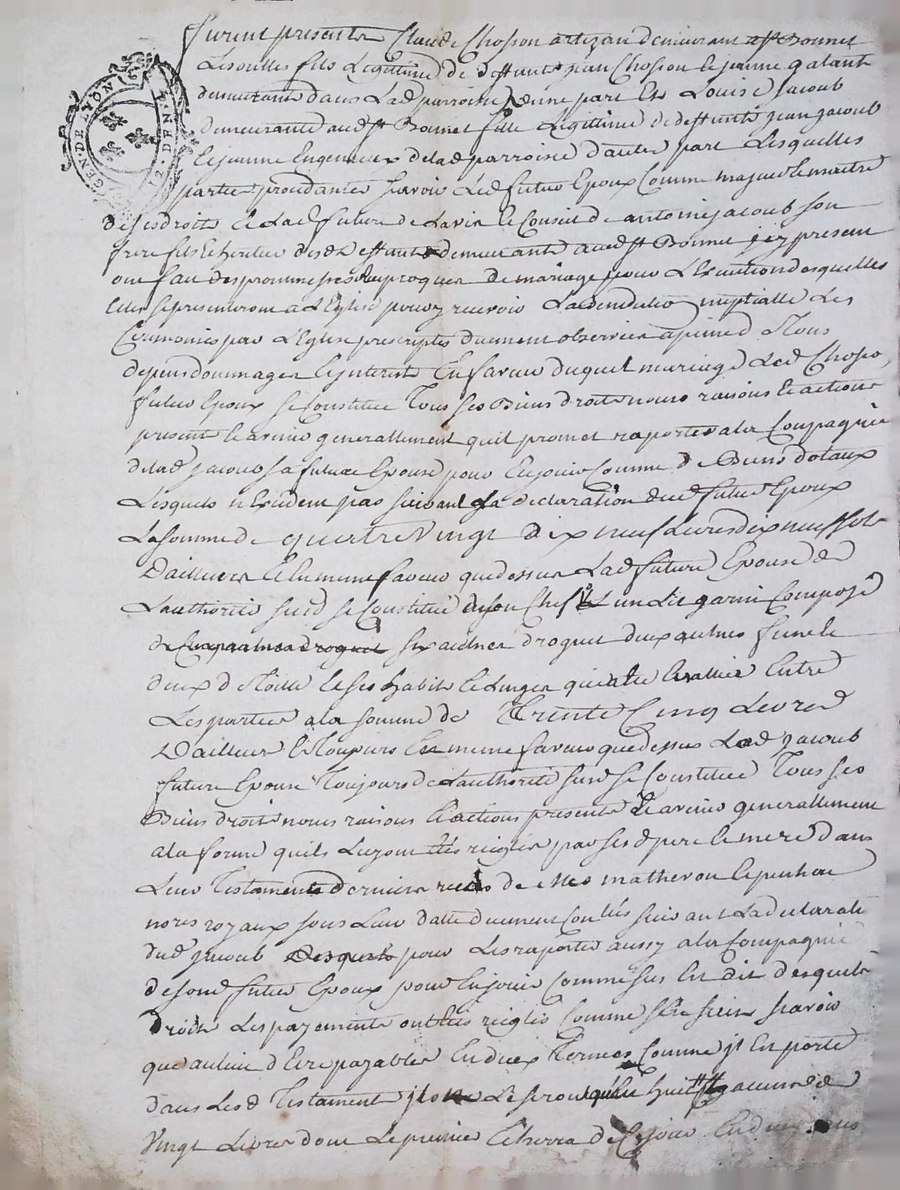 GEN. DE LYON 12. DEN.
furent presents Claude Chosson artizan demeurant a St Bonnet
Les oulles fils Legitime de deffunts jean Chosson le jeune
demeurants dans Lad parroisse d'une part Et Louise Jacoub
demeurante aud St Bonnet fille Legitime de deffunts jean jacoub
le jeune de lad parroisse d'autre part Lesquelles
parties procedantes scavoir Led futur Epoux Comme majeur le maitre
de ses droits et Lad future de Lavis le Conseil de antoine jacoub son
frere demeurant aud St Bonnet jcy present
ont fait des promesses de mariage pour L'Execution desquelles
se presenteront a L'Eglise pour y recevoir La benediction nuptialle Les
Ceremonies par L'Eglise prescriptes duement observées a peine de tous
depens dommages le jnterests En faveur duquel mariage Led Chosson
futur Epoux se Constitue Tous ses Biens droits noms raisons le actions
presents le avenir generallement quil promet raporter a la Compagnie
de lad jacoub sa future Epouse pour En jouir Comme de Biens dotaux
Lesquels n'Excedent pas suivant La declaration dud futur Epoux
La somme de quattre Vingt dix neuf Livres dix neuf sols
D'ailleurs le En meme faveur que dessus Lad future Epouse de
L'authorité susd se Constitue de son Chef un Lit garni Composé
de six aulnes droguet deux
deux de toille le ses habits le Linges Evallué Entre
Les parties a la somme de Trente Cinq Livres
D'ailleurs le Toujours En meme faveur que dessus Lad jacoub
future Epouse Toujours de L'authorité susd se Constitue Tous ses
Biens droits noms raisons le actions presents le avenir generallement
a la forme quils Luy ont étés reiglés par sesd pere le mere dans
Leur Testaments derniers de Mes matheron
nores royaux sous Leur datte duement Controllés suivant La declaration
dud jacoub pour Les raporter aussy a la Compagnie
de sond futur Epoux pour En jouir Comme sus En dit desquels
droits Les payements ont étés reiglés Comme scavoir
que au lieu d'Etre payables En deux Termes Comme jl En porté
dans Lesd Testaments jls Le seront
Vingt Livres dont Le premier Echerra de Ce jour En deux ans